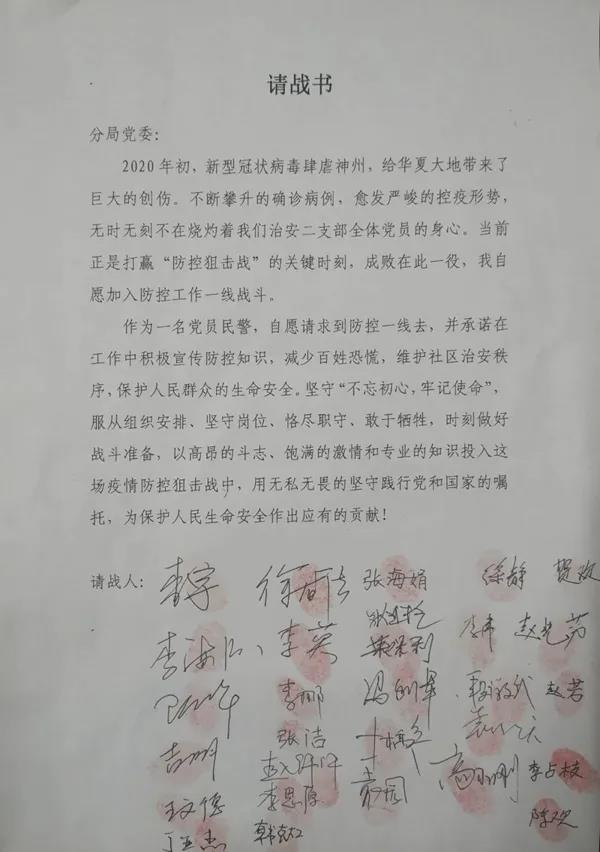 请战书
分局党委：
2020年初，新型冠状病毒肆虐神州，给华夏大地带来了
巨大的创伤。不断攀升的确诊病例，愈发严峻的控疫形势，
无时无刻不在烧灼着我们治安二支部全体党员的身心。当前
正是打赢“防控狙击战”的关键时刻，成败在此一役，我自
愿加入防控工作一线战斗。
作为一名党员民警，自愿请求到防控一线去，并承诺在
工作中积极宣传防控知识，减少百姓恐慌，维护社区治安秩
序，保护人民群众的生命安全。坚守“不忘初心，牢记使命”，
服从组织安排、坚守岗位、恪尽职守、敢于牺牲，时刻做好
战斗准备，以高昂的斗志、饱满的激情和专业的知识投入这
场疫情防控狙击战中，用无私无畏的坚守践行党和国家的嘱
托，为保护人民生命安全作出应有的贡献！
请战人： 张海娟 徐静
李英
李娜 赵若
张洁
李思原 李占枝